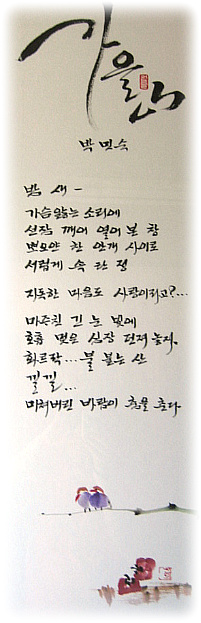 가을山
박명숙
밤 새 -
가슴앓는 소리에
선잠 깨어 열어 본 창
뽀오얀 찬 안개 사이로
서럽게 속 탄 정
지독한 마음도 사랑이라고?...
마주친 긴 눈 빛에
호흡 멎은 심장 던져 놓자.
화르락... 불 붙는 산
낄낄...
미쳐버린 바람이 춤을 춘다